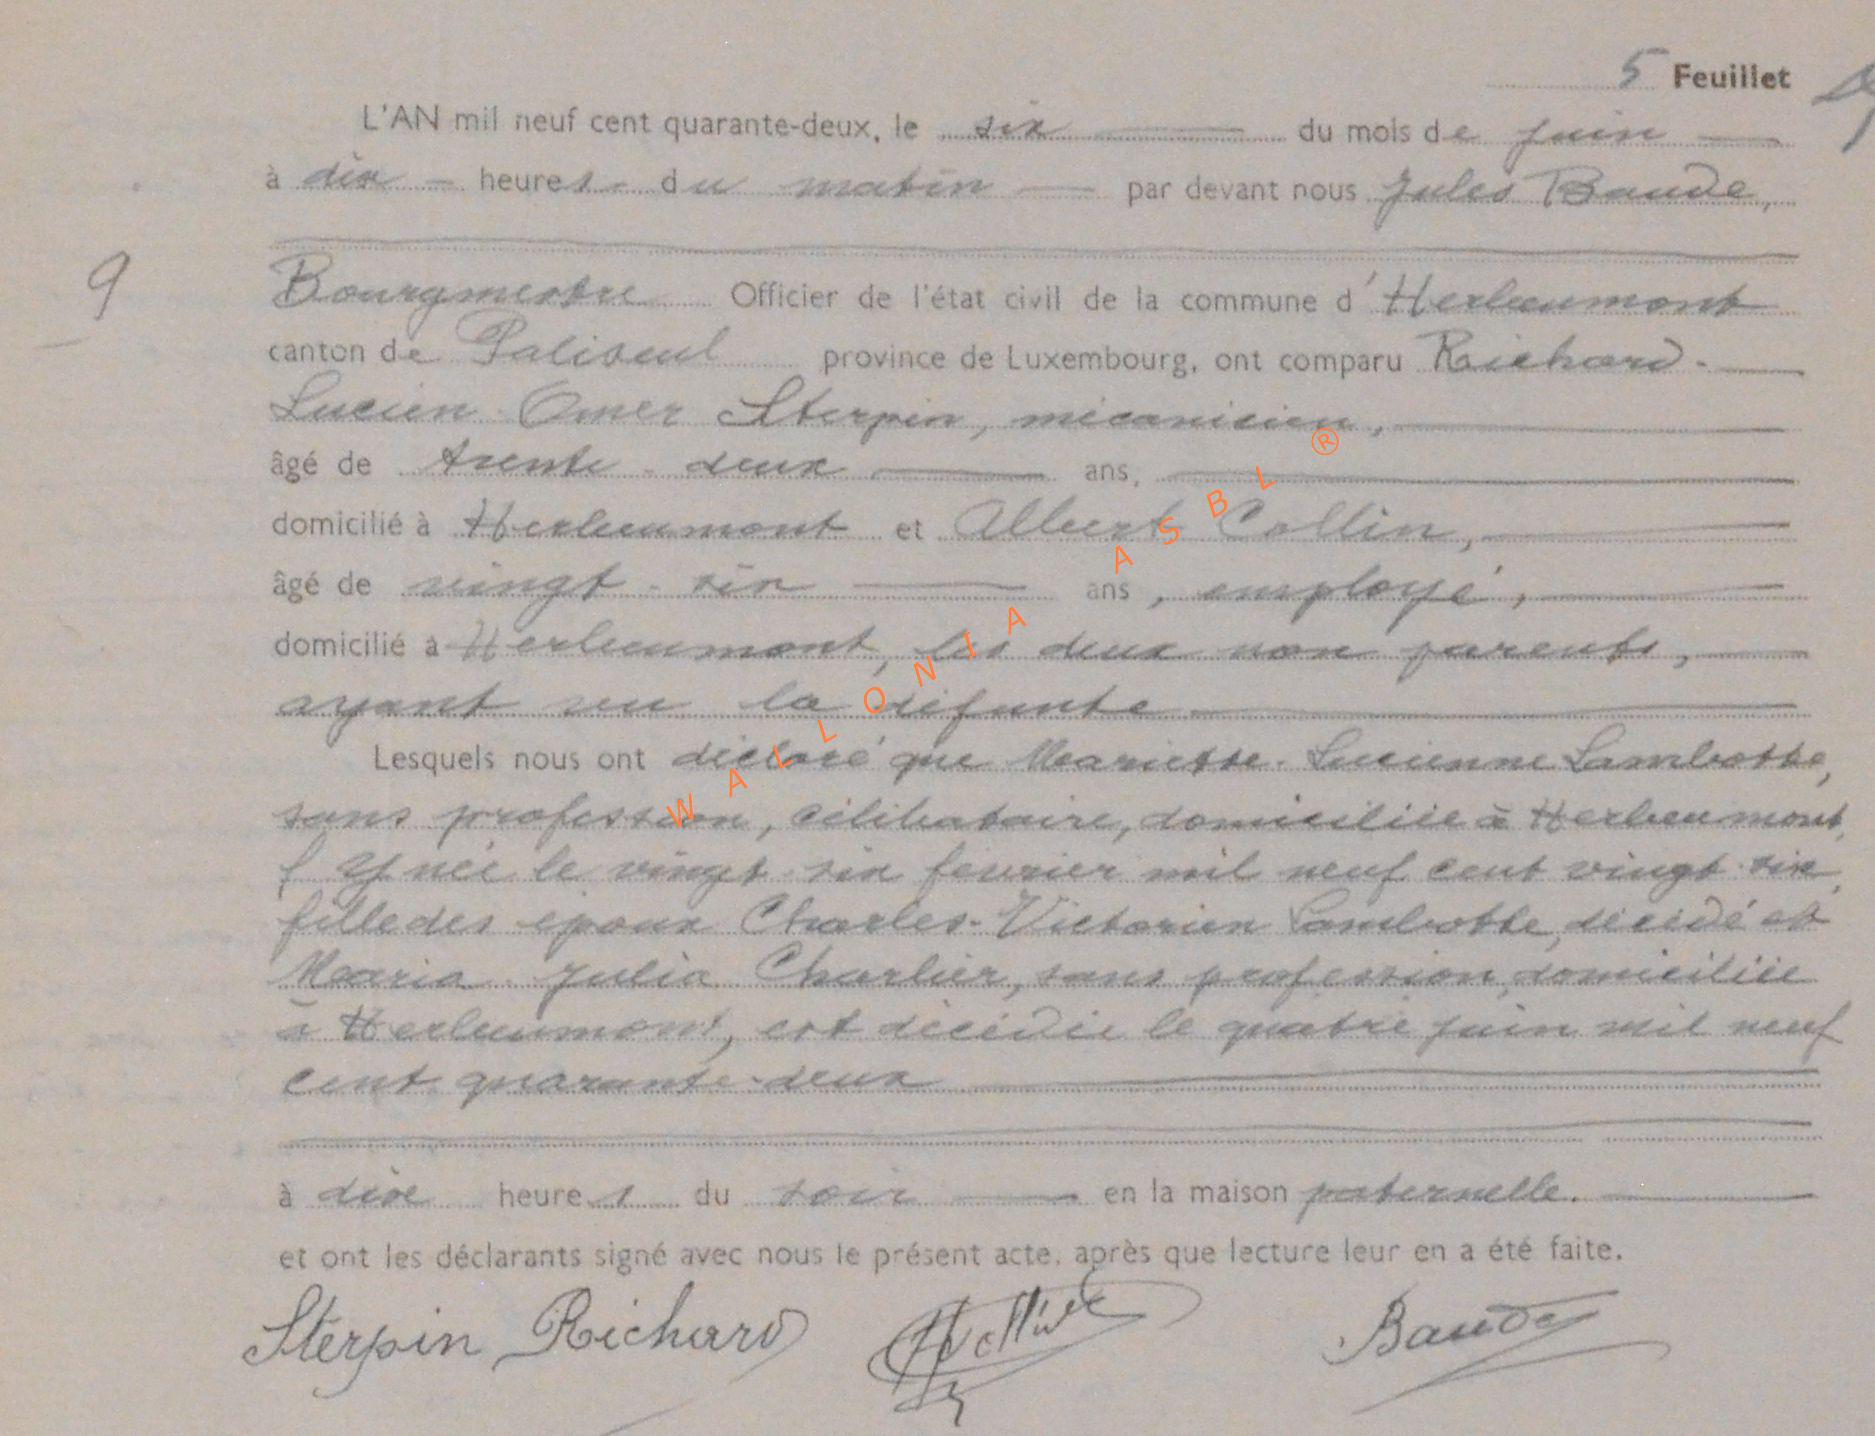 5 Feuillet
L'AN mil neuf cent quarante-deux, le six du mois de juin
à dix heures du matin par devant nous Jules Baude,
9
Bourgmestre Officier de l'état civil de la commune d'Herbeumont
canton de Paliseul province de Luxembourg, ont comparu Richard-
Lucien-Omer Sterpin, mécanicien,
âgé de trente-deux ans,
domicilié à Herbeumont et Albert Collin,
âgé de vingt-six ans, employé,
domicilié à Herbeumont, les deux non parents,
ayant vu la défunte
Lesquels nous ont déclaré que Mariette-Lucienne Lambotte,
sans profession, célibataire, domiciliée à Herbeumont,
y née le vingt-six février mil neuf cent vingt-six,
fille des époux Charles-Victorien Lambotte, décédé et
Maria-Julia Charlier, sans profession, domiciliée
à Herbeumont, est décédée le quatre juin mil neuf
cent quarante-deux
à dix heures du soir en la maison paternelle.
et ont les déclarants signé avec nous le présent acte, après que lecture leur en a été faite.
Sterpin Richard Collin Baude
WALLONIA ASBL ®